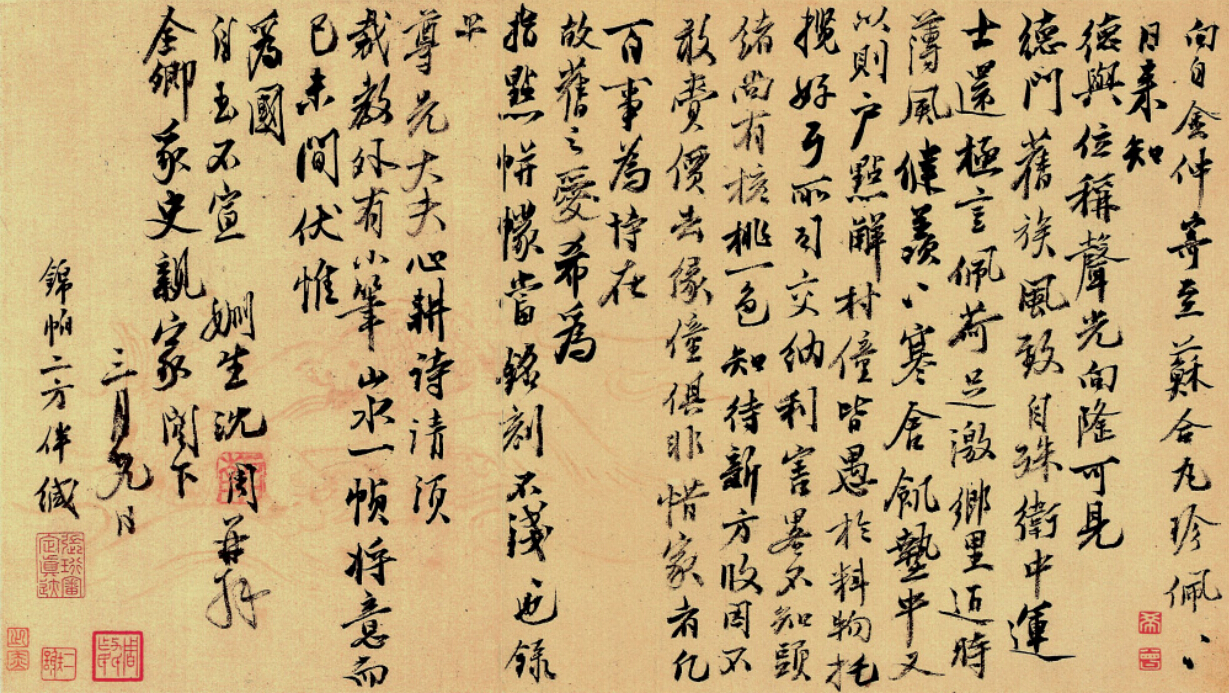 向自金仲寄至蘇合丸珍佩〻
日來知
德與位稱聲光向隆可見
德門舊族風致自殊衛中運
士還極言佩荷足激鄉里近時
薄風健羨〻寒舍飢墊中又
以則户點解村僮皆愚於料物托
攬好歹所司交納利害畧不知頭
緒尚有核桃一色知待新方收因不
敢賣價去緣僮俱非惜家者凡
百事為恃在
故舊之愛希為
指點帡幪當銘刻不淺也錄
上
尊兄大夫心耕詩請須
裁教外有小筆山水一幀將意而
已未間伏惟
為國
自玉不宣 姻生沈周再拜
全卿豕史親家閣下
三月九日
錦帕二方伴緘